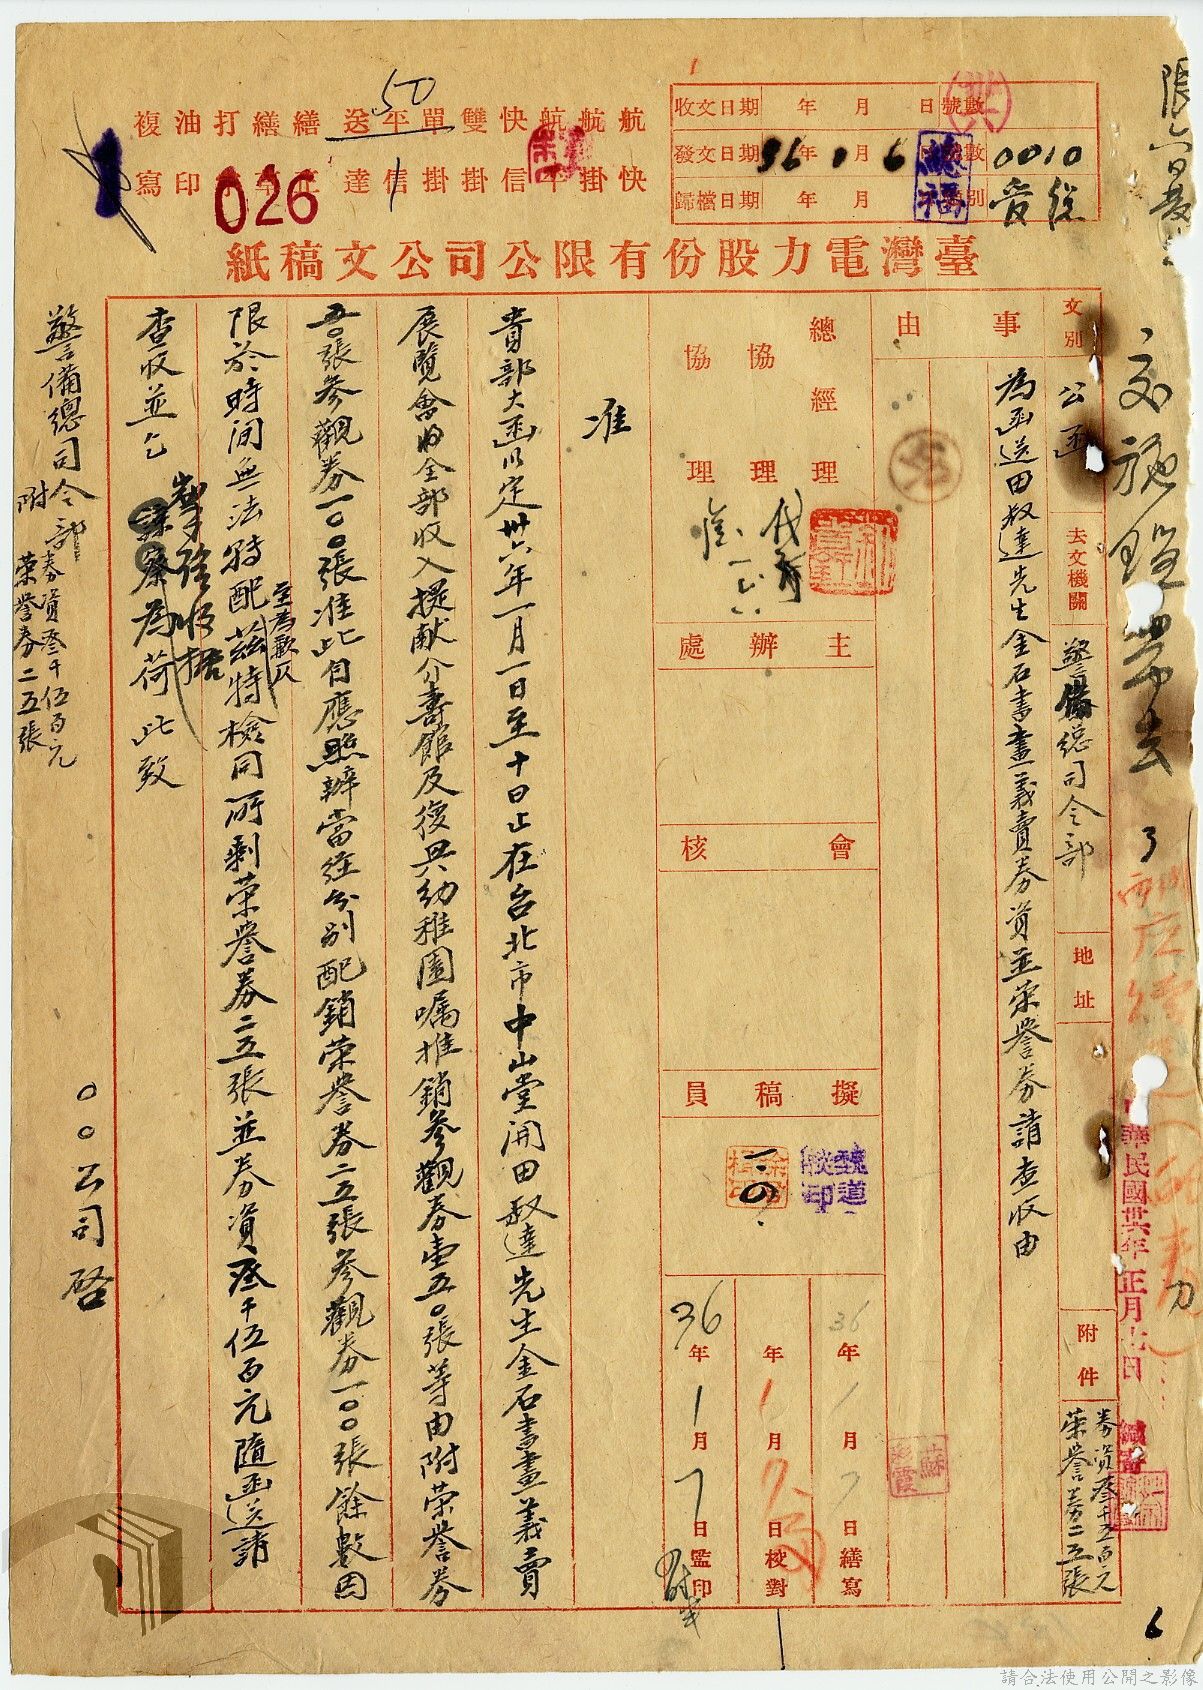 張
交施鎧昇去
中華民國卅六年正月七日
收文日期 年 月 日 號數
發文日期 36年1月6日 號數 0010
歸檔日期 年 月 別
總福
航 航 航 快 雙 單 平 送 繕 繕 打 油 複
快 掛 平 信 掛 掛 信 達 印 寫
50
026
臺灣電力股份有限公司公文稿紙
文別
公函
去文機關
警備總司令部
地址
附件
券資叁千五百元
榮譽券二五張
事由
為函送田叔達先生金石書畫義賣券資並榮譽券請查收由
總經理
協理
協理
代
主辦處
會核
擬稿員
一.四.
36年1月7日繕寫
年1月7日校對
36年1月7日監印
准
貴部大函以定卅六年一月一日至十日止在台北市中山堂開田叔達先生金石書畫義賣
展覽會將全部收入提献介壽館及復興幼稚園囑推銷參觀券壹五〇張等由附榮譽券
五〇張參觀券一〇〇張准此自應照辦當經分別配銷榮譽券二五張參觀券一〇〇張餘數因
限於時間無法特配至為歉仄茲特檢同所剩榮譽券二五張並券資叁千伍百元隨函送請
查收並乞
掣給收据
為荷此致
警備總司令部
附券資叁千伍百元
榮譽券二五張
〇〇公司啓
6
請合法使用公開之影像